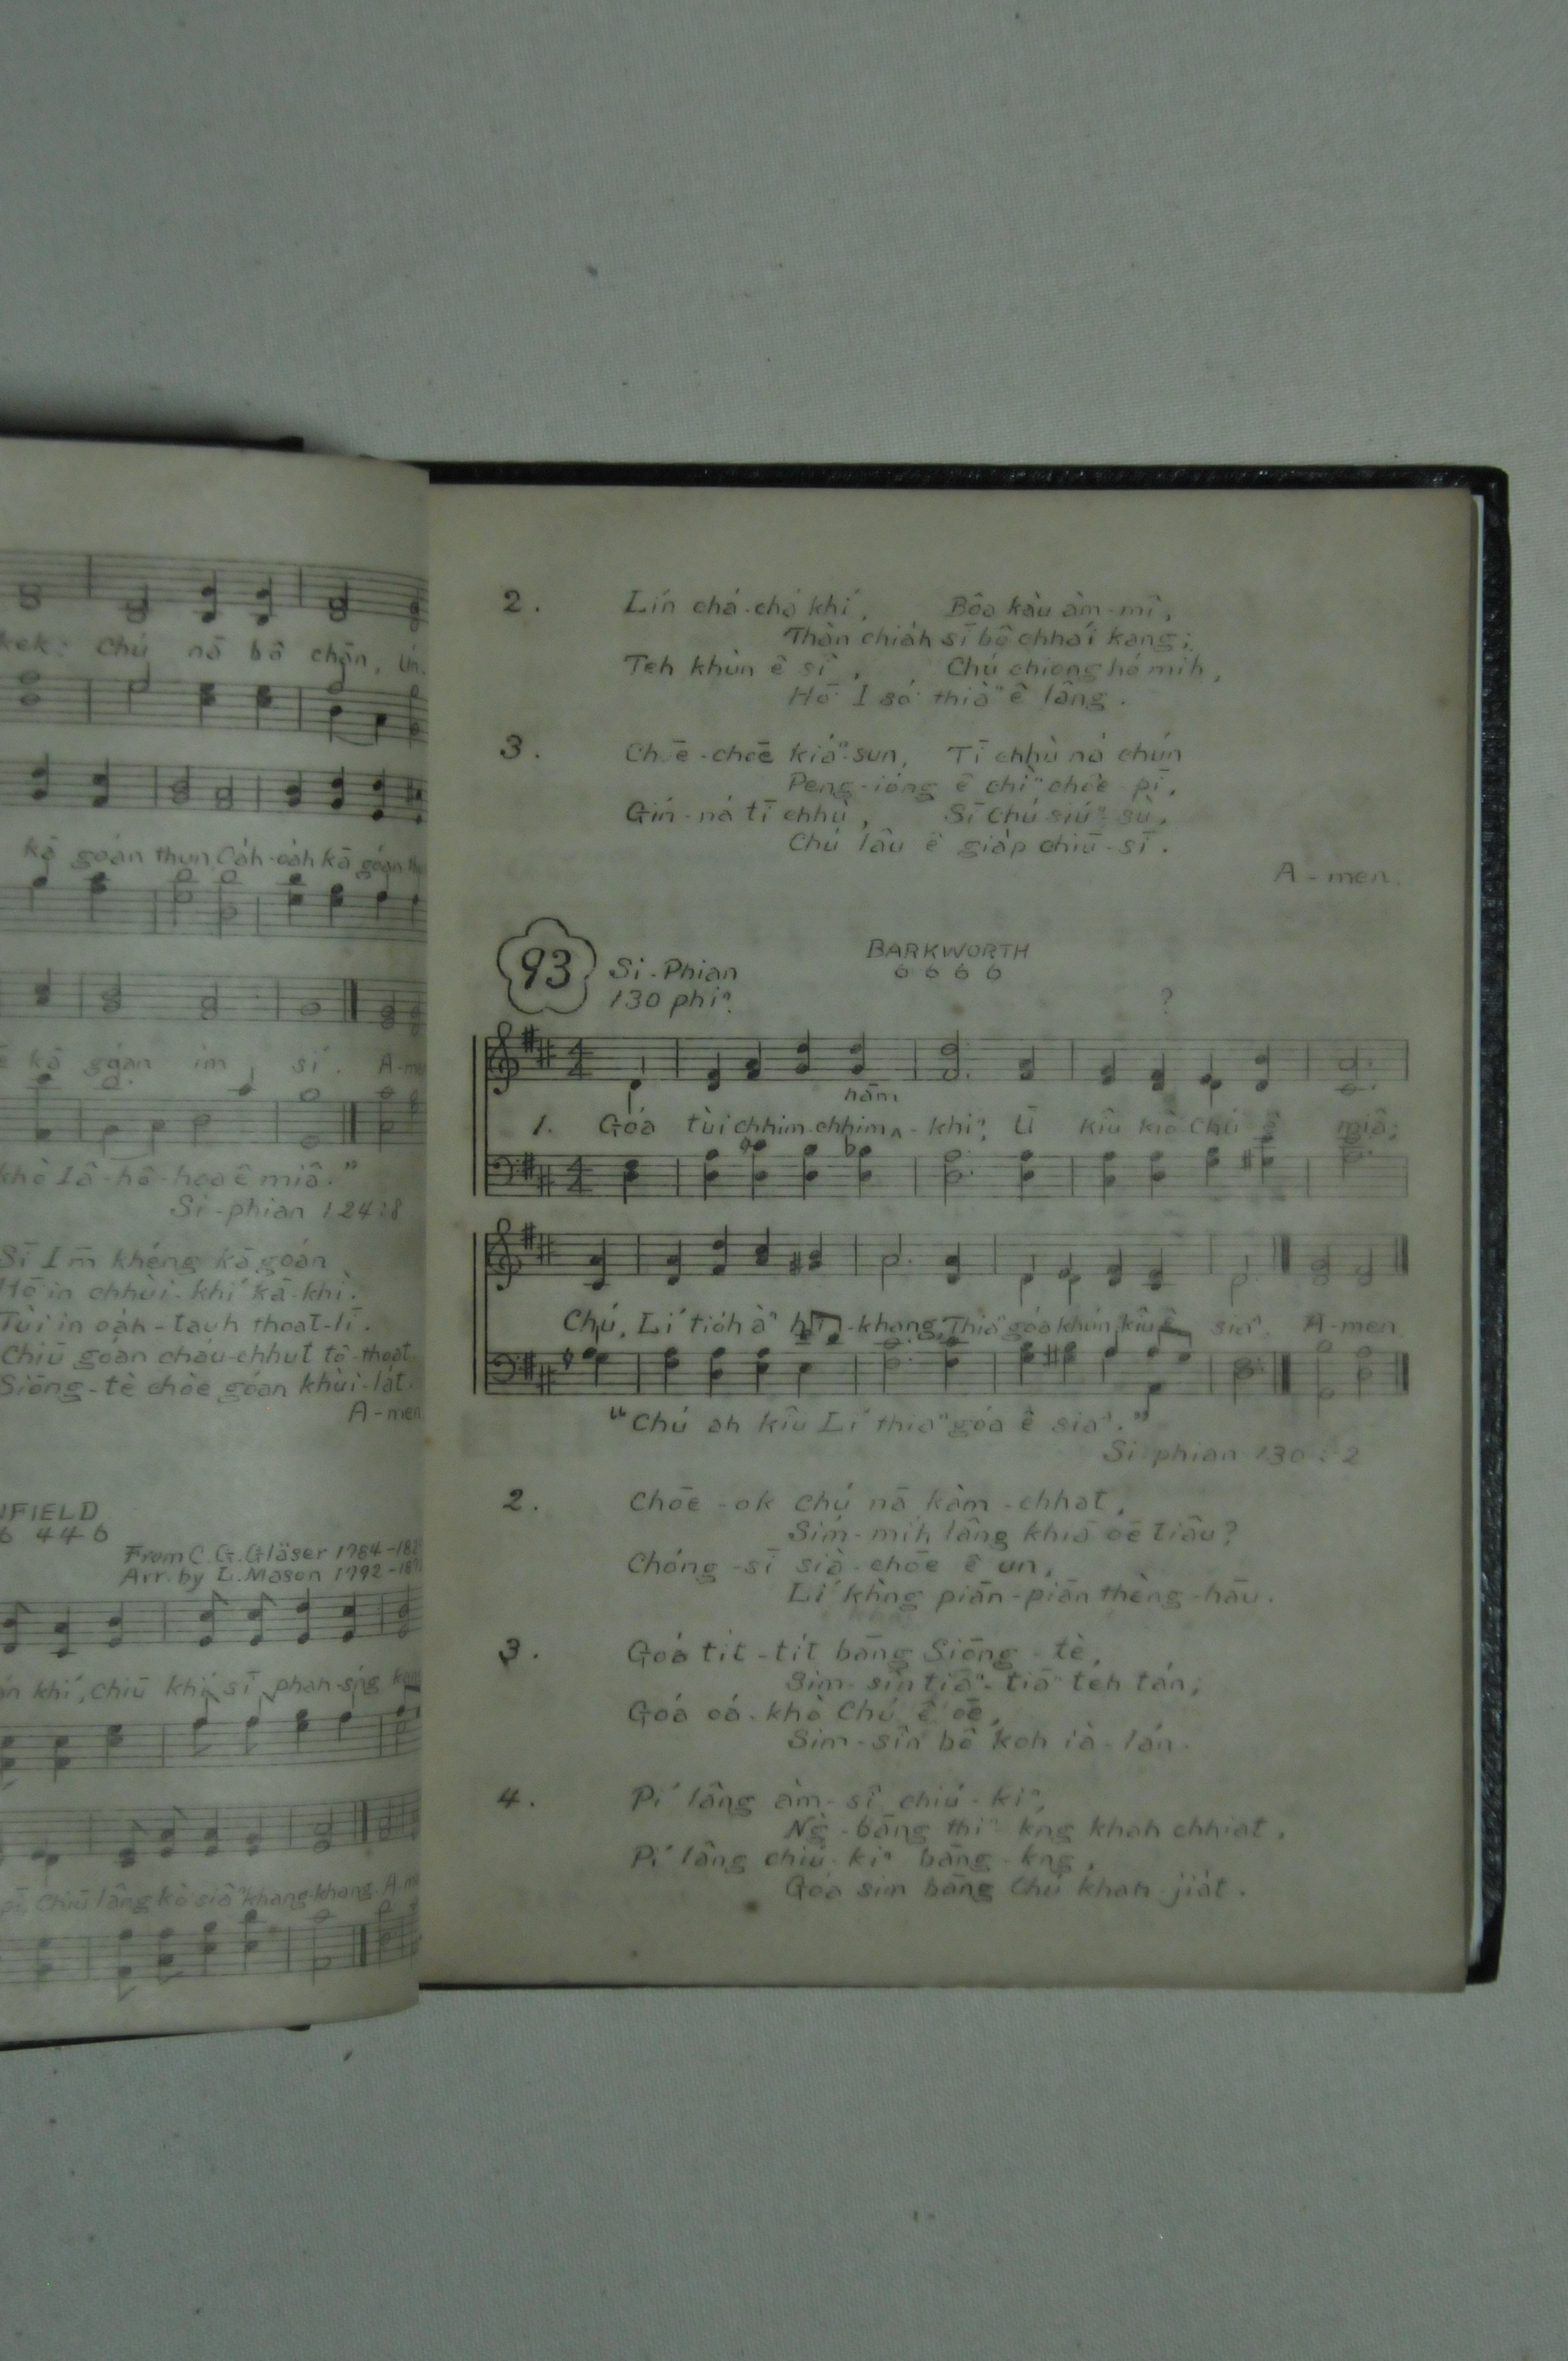 kek: Chú nā bô chān, Ún.
kā goán thun, Oa̍h-oa̍h kā góan
kā góan ìm sí. A-me
khò Iâ-hô-hoa ê miâ."
Si-phian 124:8
Sī I m̄ khéng kā góan
Hō͘ in chhùi-khí kā-khì.
Tùi in oa̍h-tauh thoat-lī.
Chiū góan cháu-chhut tô-thoat
Siōng-tè chòe góan khùi-la̍t.
A-men
NFIELD
6 446
From C. G. Gläser 1784-182
Arr. by L. Mason 1792-187
án khí, chiū khí-sī phah-sńg
pī, Chiū lâng kò siâⁿ khang-khang. A-m
2. Lín chá-chá khí, Bôa kàu àm-mî,
Thàn chia̍h sī bô chhái kang;
Teh khùn ê sî, Chú chiong hó mi̍h,
Hō͘ I só͘ thiàⁿ ê lâng.
3. Chē-chōe kiáⁿ-sun, Tī chhù ná chún
Peng-ióng ê chìⁿ chōe-pī,
Gín-ná tī chhù, Sī Chú siúⁿ-sù,
Chú lâu ê gia̍p chiū-sī.
A-men.
93
Si-Phian
130 phiⁿ
BARKWORTH
6 6 6 6
?
hām
1. Góa tùi chhim-chhim^-khiⁿ, Ū kîu kiò Chú ê miâ;
Chú, Lí tio̍h àⁿ hī-khang, Thiaⁿ góa khún-kîu ê siaⁿ. A-men
"Chú ah kîu Lí thiaⁿ góa ê siaⁿ."
Si-phian 130:2
2. Chōe-ok Chú nā kàm-chhat,
Sím-mi̍h lâng khiā ōe tiâu?
Chóng-sī sià-chōe ê un,
Lí khǹg piān-piān thèng-hāu.
3. Góa ti̍t-ti̍t bāng Siōng-tè,
Sim-sîn tiāⁿ-tiāⁿ teh tán;
Góa oá-khò Chú ê ōe,
Sim-sîn bô koh ià-lán.
4. Pí lâng àm-sî chiú-kiⁿ,
Ǹg-bāng thiⁿ kng khah chhiat,
Pí lâng chiú-kiⁿ bāng-kng,
Góa sim bāng Chú khah jia̍t.